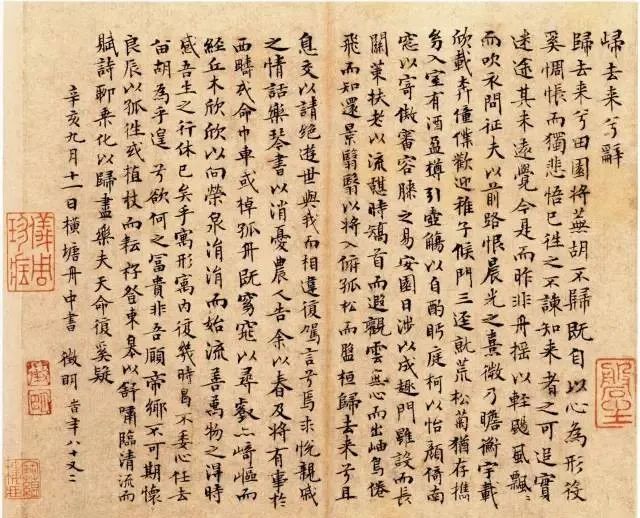 歸去来兮辭
歸去来兮田園将蕪胡不歸既自以心為形役
奚惆悵而獨悲悟已徃之不諫知来者之可追實
迷途其未遠覺今是而昨非舟揺以輊颺風飄〻
而吹衣問征夫以前路恨晨光之熹微乃瞻衡宇載
欣載奔僮僕歡迎稚子候門三迳就荒松菊猶存携
幼入室有酒盈樽引壺觴以自酌眄庭柯以怡顔倚南
窓以寄傲審容膝之易安園日涉以成趣門雖設而長
關策扶老以流憩時矯首而遐觀雲無心而出岫鳥倦
飛而知還景翳翳以将入孤松而盤桓歸去来兮且
息交以請絶遊世與我而相違復駕言兮焉求悦親戚
之情話樂琴書以消憂農人告余以春及将有事於
西疇或命巾車或棹孤舟既窈窕以尋壑亦崎嶇而
經丘木欣欣以向榮泉涓涓而始流善萬物之得時
感吾生之行休已矣乎寓形寓内復幾時曷不委心任去
留胡為乎遑兮欲何之富貴非吾願帝鄉不可期懷
良辰以孤徃或植杖而耘耔登東皋以舒嘯臨清流而
賦詩聊乗化以歸盡樂夫天命復奚疑
辛亥九月十一日横塘舟中書 徵明 旹年八十又二
儀周珍藏
徵明